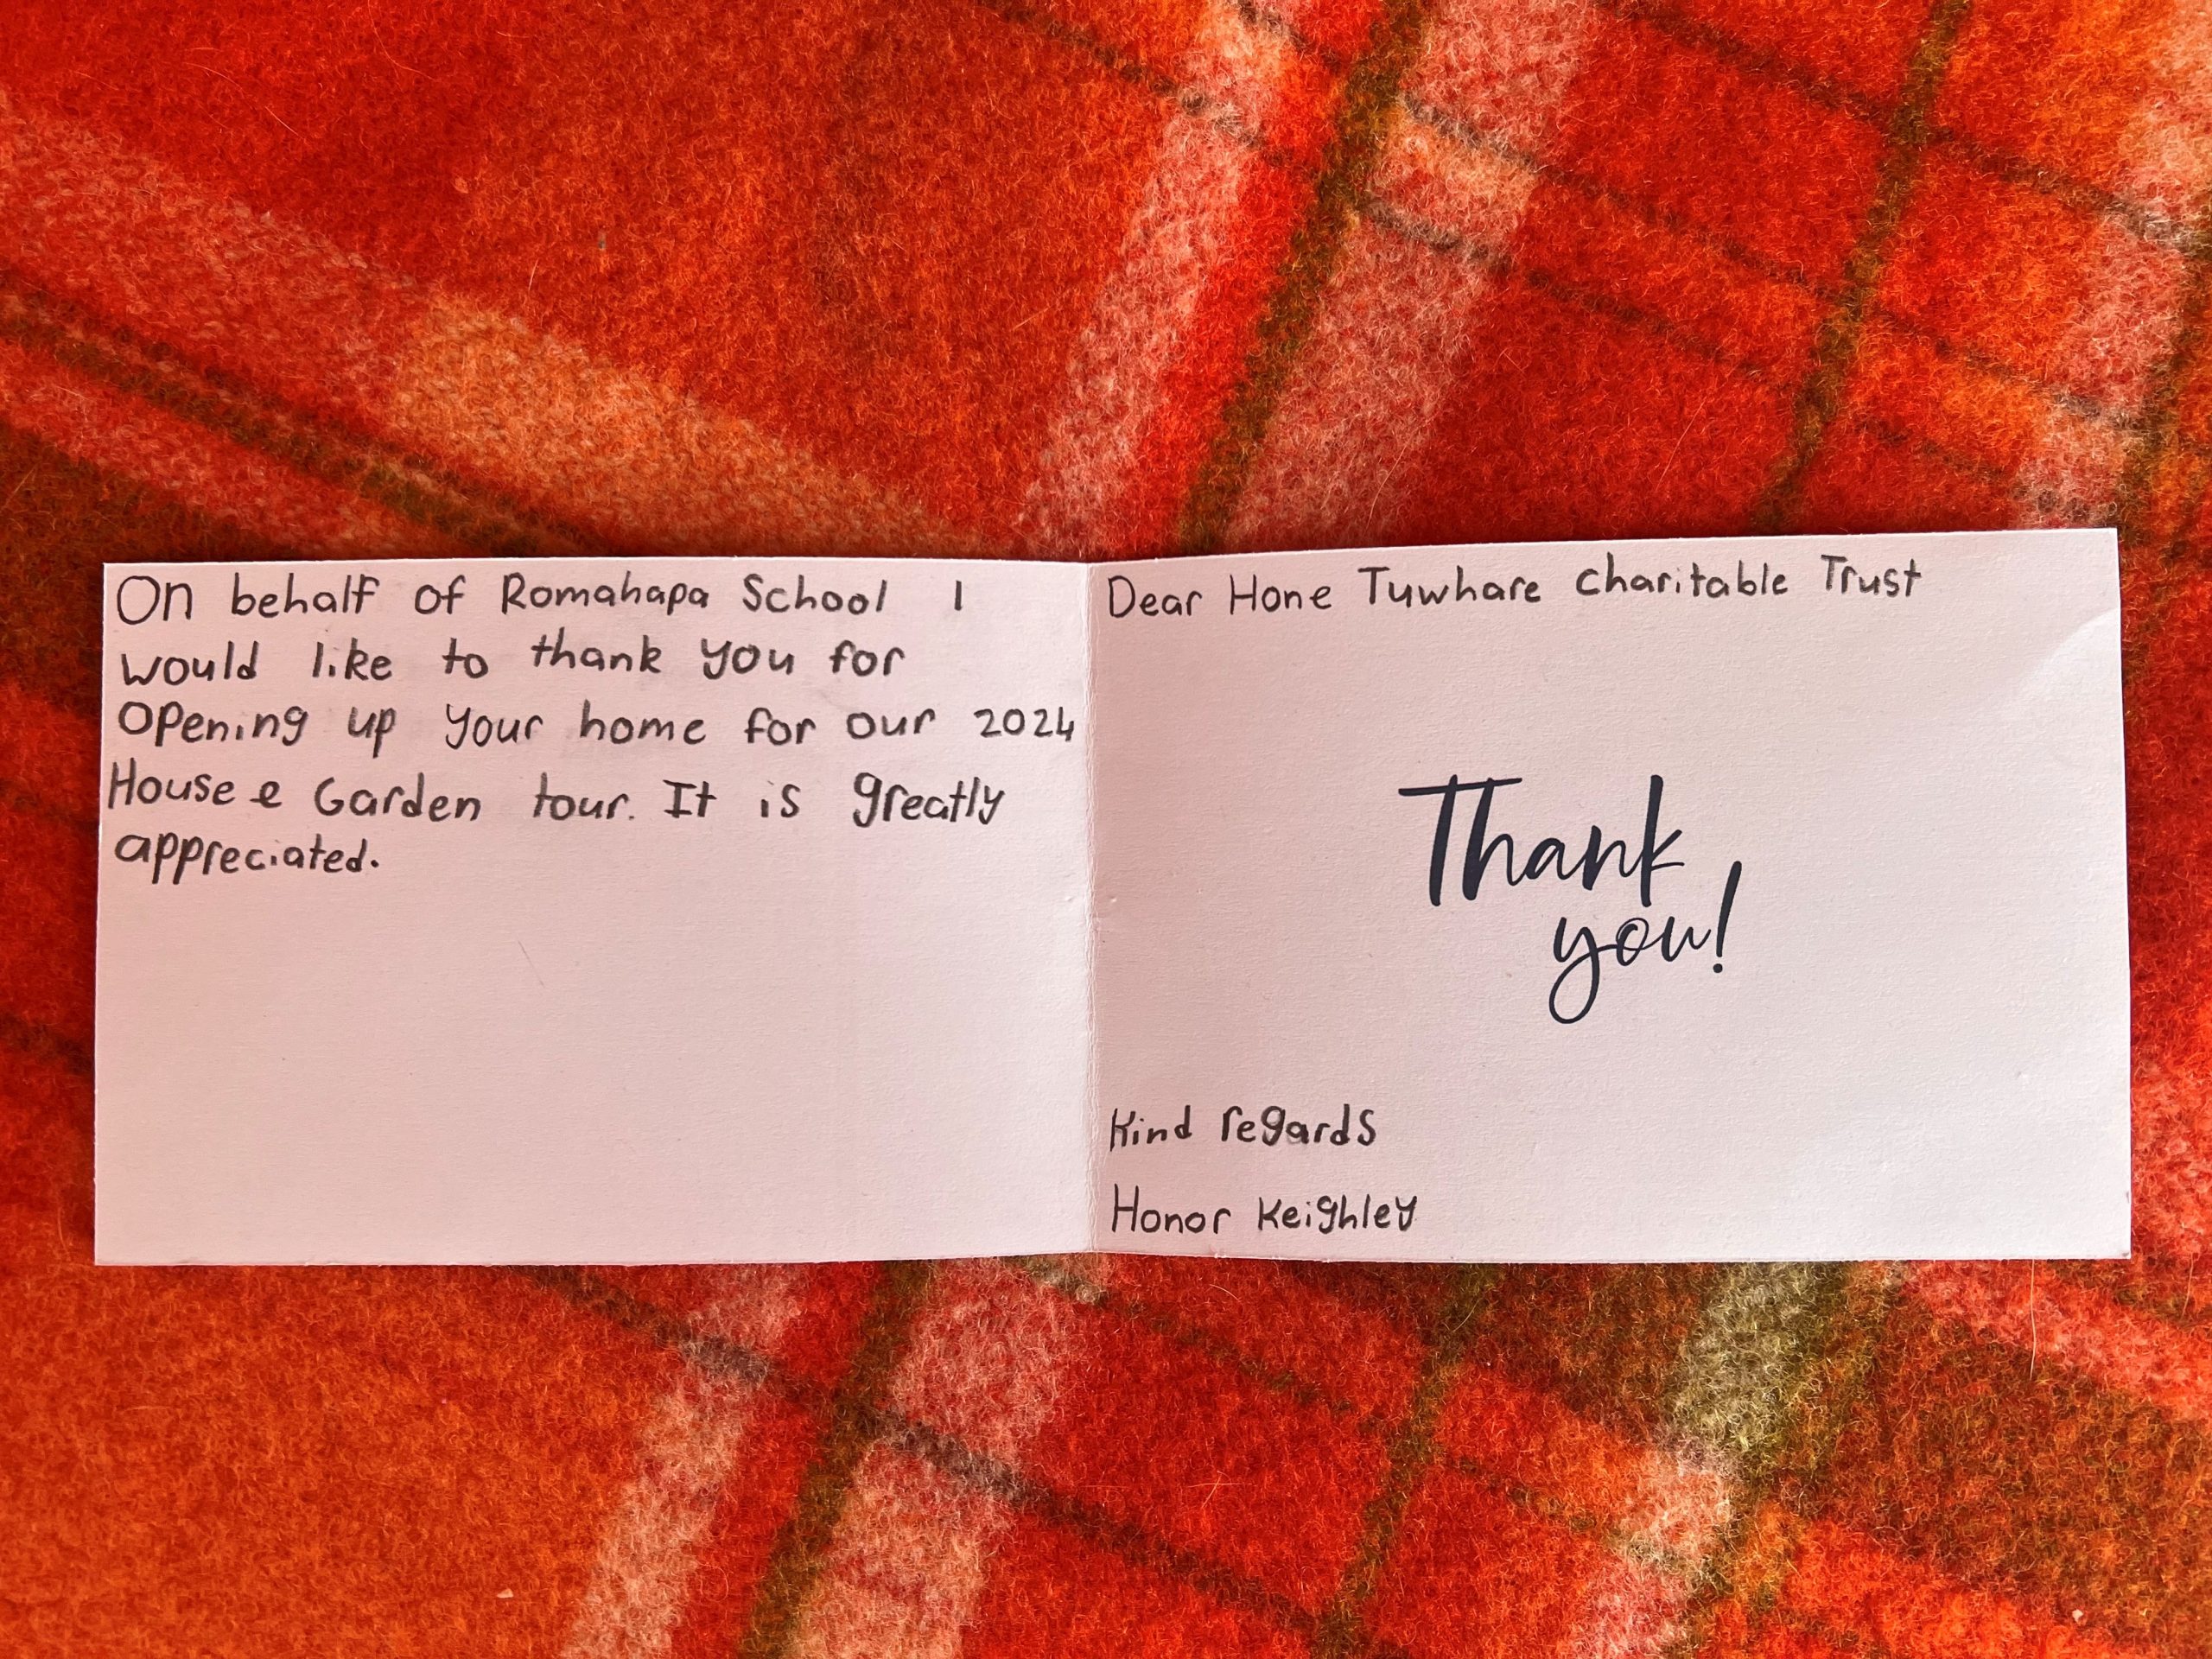 On behalf of Romahapa School I
would like to thank you for
opening up your home for our 2024
House & Garden tour. It is greatly
appreciated.
Dear Hone Tuwhare Charitable Trust
Thank
you!
Kind regards
Honor Keighley